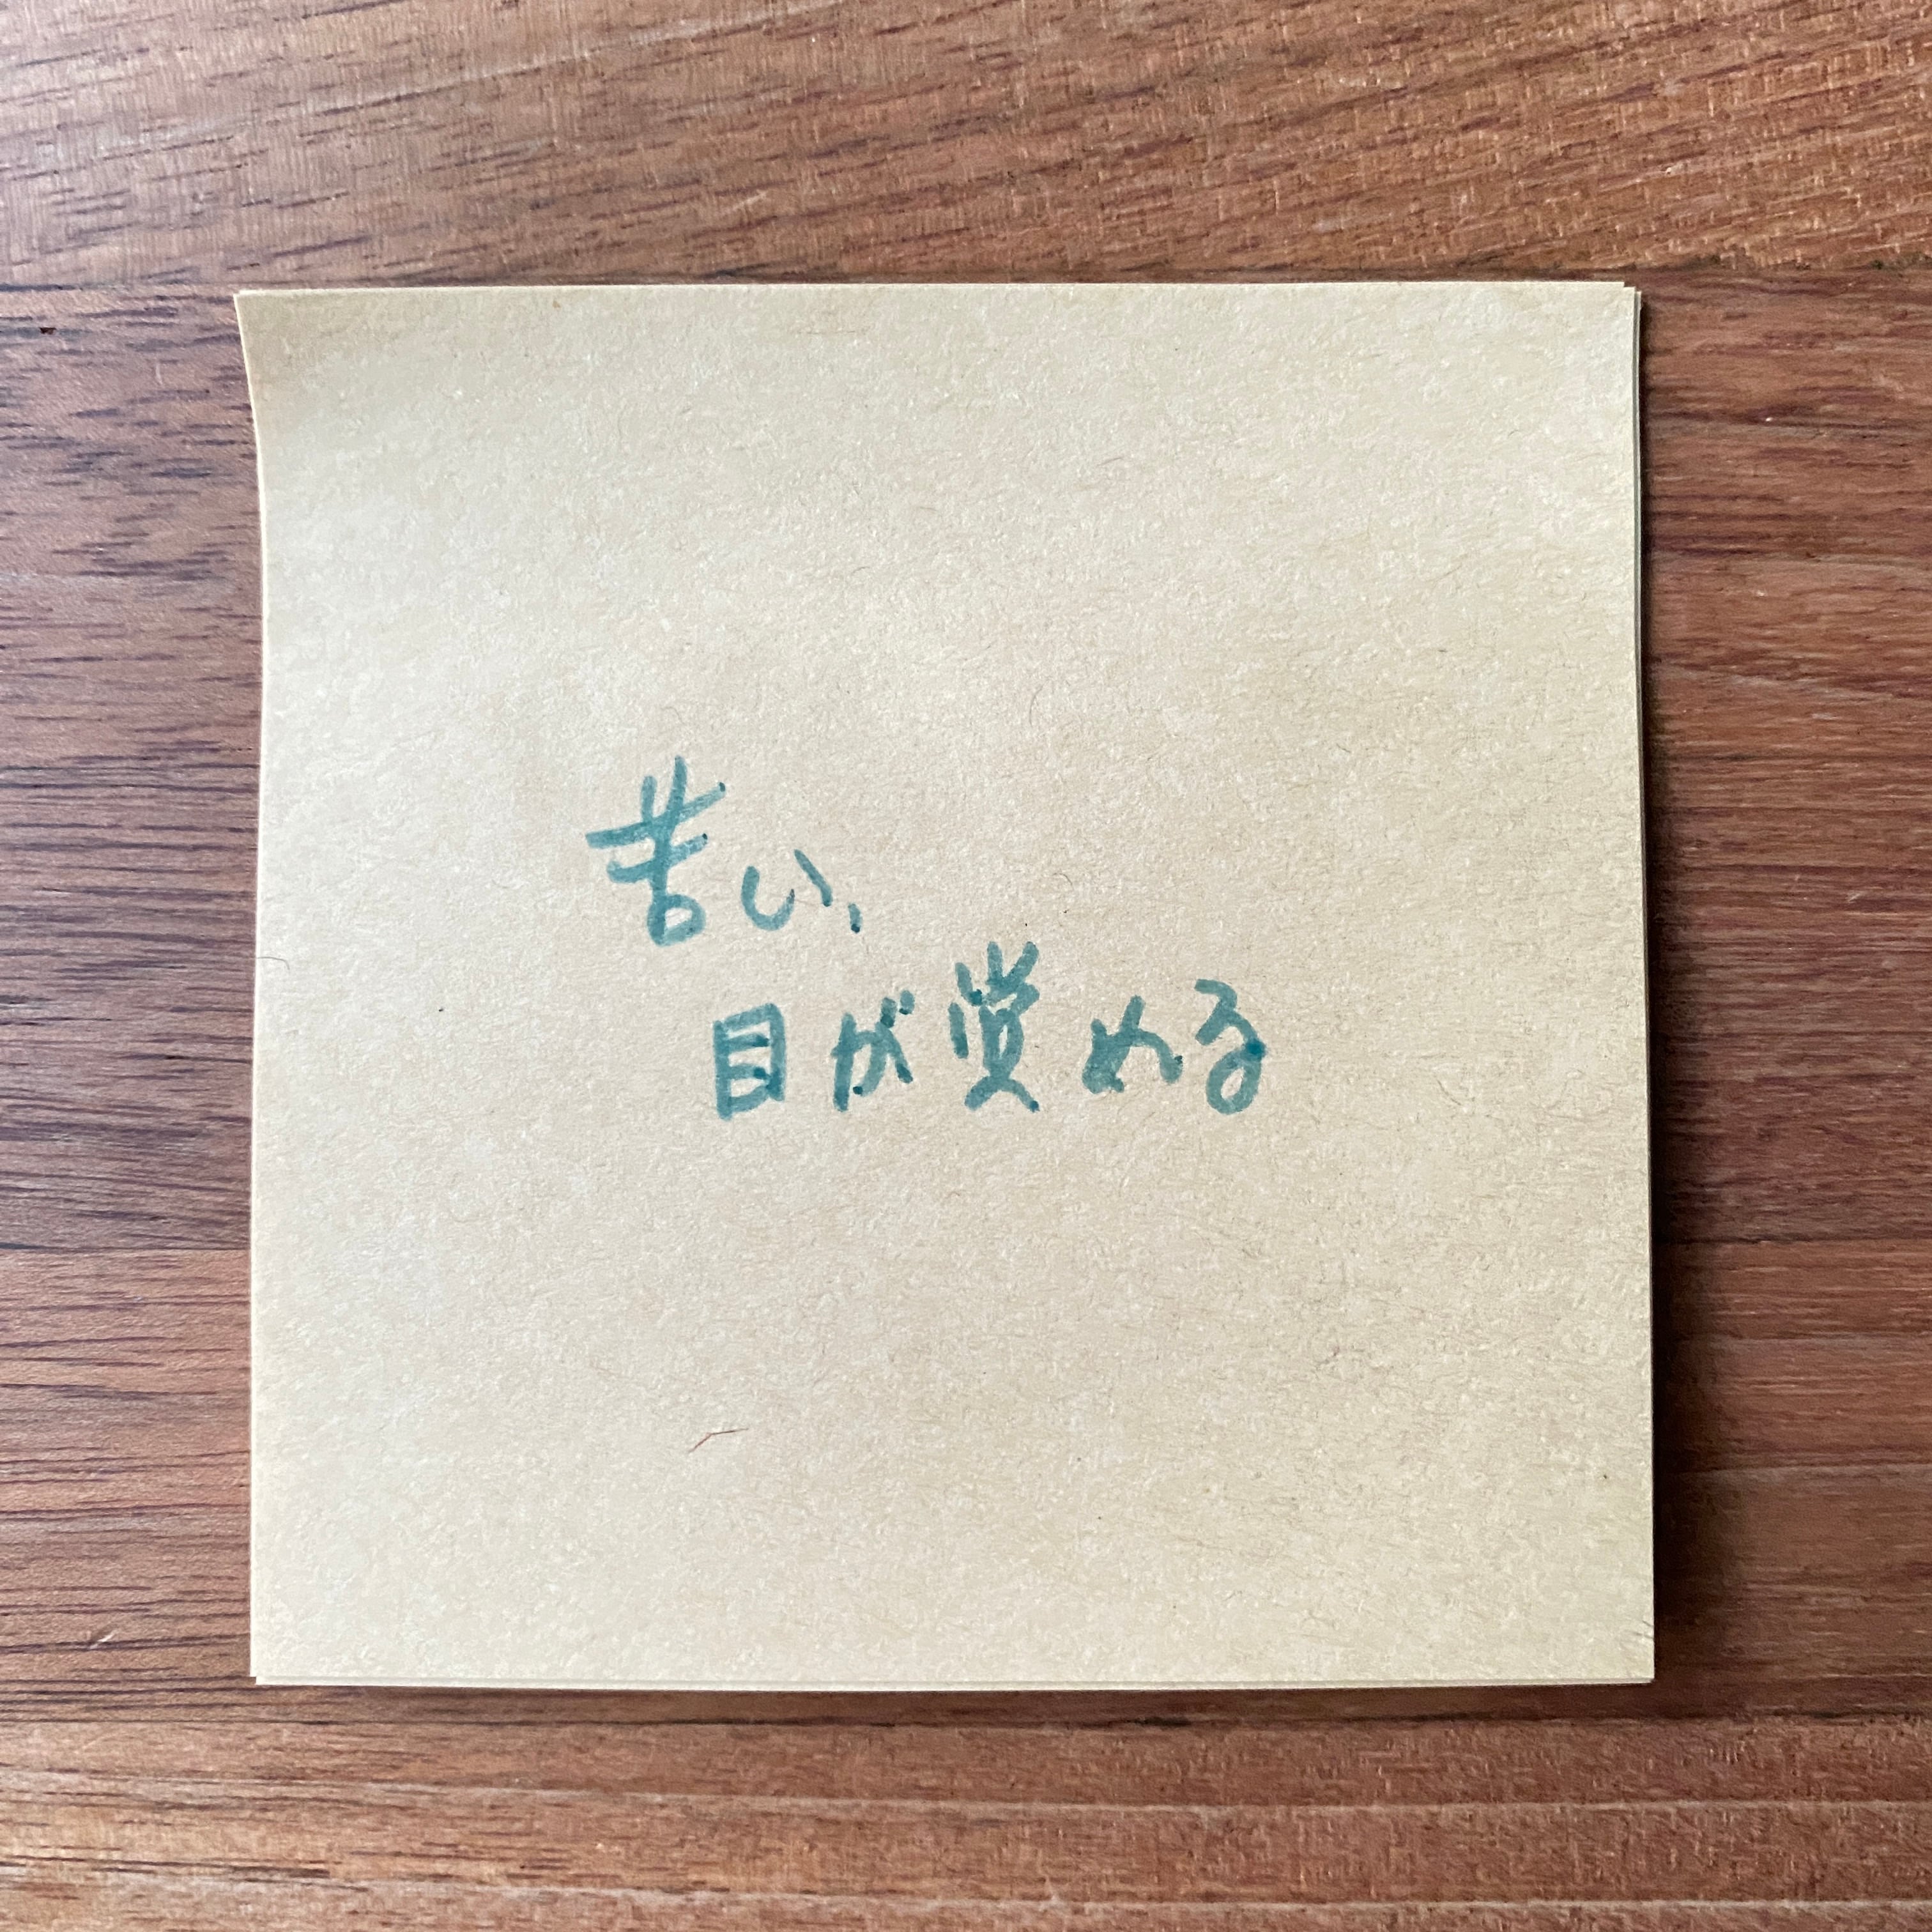 苦い、
目が覚める